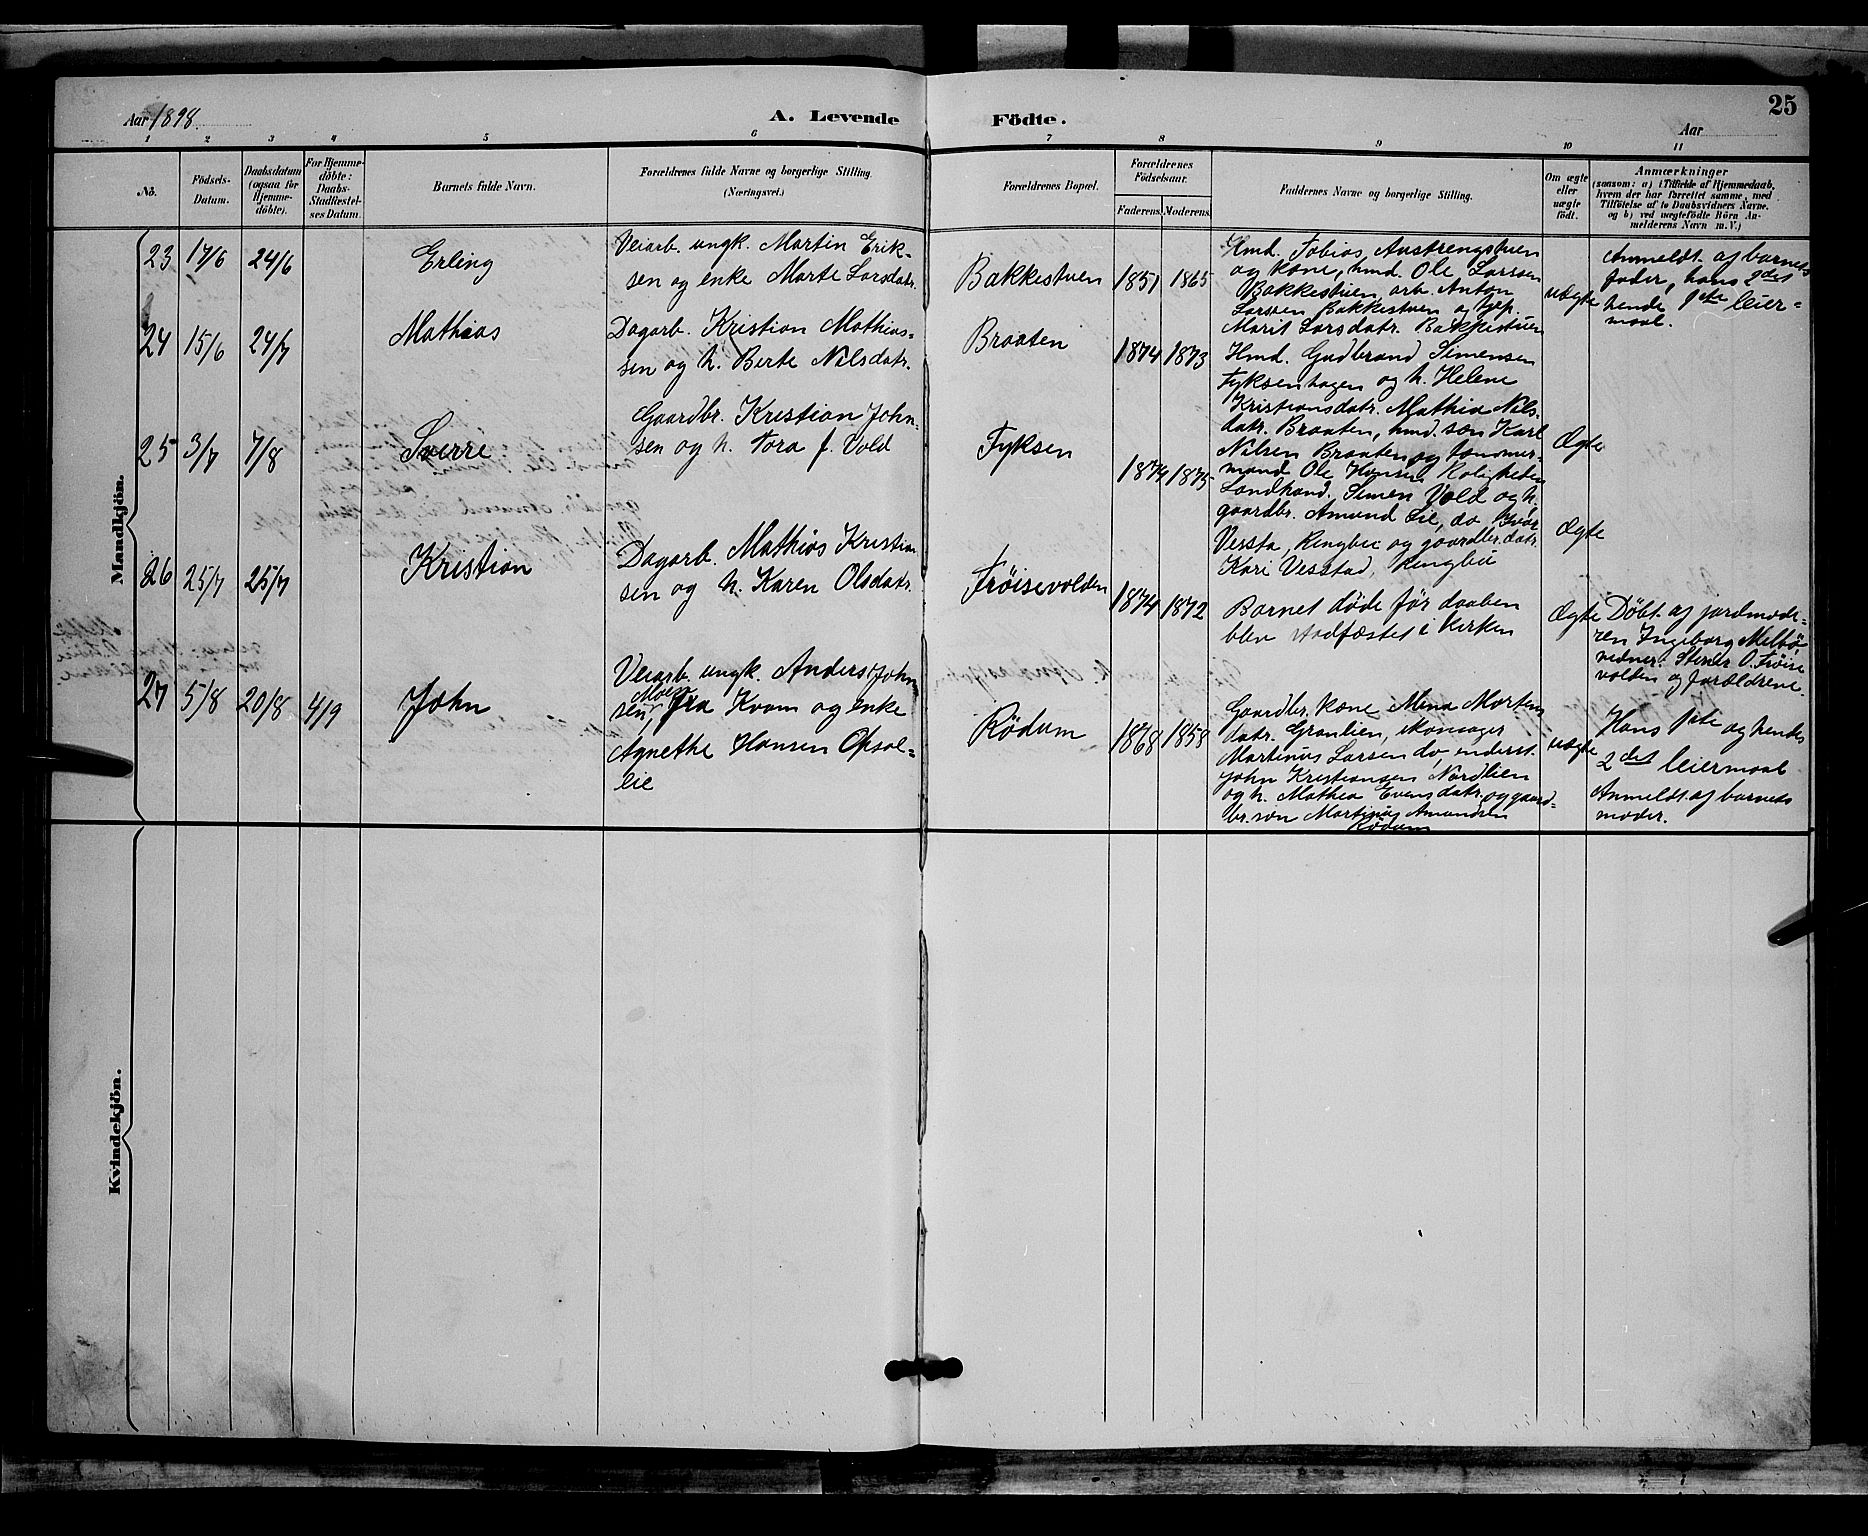 25
Aar 1898.
A. Levende Födte.
Aar
1 2 3 4 5 6 7 8 9 10 11
No.
Födsels-
Datum.
Daabsdatum
(ogsaa for
Hjemme-
döbte).
For Hjemme-
döbte:
Daabs-
Stadfæstel-
ses Datum.
Barnets fulde Navn.
Forældrenes fulde Navne og borgerlige Stilling.
(Næringsvei.)
Forældrenes Bopæl.
Forældrenes
Födselsaar.
Faderens. Moderens.
Faddernes Navne og borgerlige Stilling.
Om ægte
eller
uægte
födt.
Anmærkninger
(saasom: a) i Tilfælde af Hjemmedaab,
hvem der har forrettet samme, med
Tilföielse af to Daabsvidners Navne.
og b) ved uægtefödte Börn An-
melderens Navn m. V.)
Mandkjön.
23 17/6 24/6
Erling
Veiarb. ungk. Martin Erik-
sen og enke Marte Larsdatr.
Bakkestuen
1851 1865
Hmd. Tobias Austrengstuen
og kone, hmd. Ole Larsen
Bakkestuen, arb. Anton
Larsen Bakkestuen og
Marit Larsdatr. Bakkestuen
uægte
Anmeldt af barnets
fader, hans 2det
hendes 1ste leier-
maal.
24 15/6 24/7
Mathias
Dagarb. Kristian Mathias-
sen og h. Berte Nilsdatr.
Braaten
1874 1873
Hmd. Gudbrand Simensen
Fyksenhagen og h. Helene
Kristiansdatr. Mathia Nils-
datr. Braaten, hmd. søn Karl
Nilsen Braaten og tømmer-
mand Ole Hansen Roligheden
Ægte
25 3/7 7/8
Sverre
Gaardbr. Kristian John-
sen og h. Tora f. Vold
Fyksen
1874 1875
Landhand. Simen Vold og h.
gaardbr. Amund Lie, do Ivar
Vessta, Ringbu og gaardbr. datr.
Kari Vesstad, Ringbu
Ægte
26 25/7 25/7
Kristian
Dagarb. Mathias Kristian
sen og h. Karen Olsdatr.
Frøisevolden
1874 1872
Barnet døde før daaben
blev stadfæstet i kirken
Ægte
Døbt af jordmode-
ren Ingeborg Melbø
vidner: O. Frøise
volden og forældrene.
27 5/8 20/8 4/9
John
Veiarb. ungk. Anders John
sen Moen, fra Kvam og enke
Agnethe Hansen Opsal-
lie
Rødum
1868 1858
Gaardbr. kone Mina Mortens
datr. Granlien, skomager
Martinus Larsen do, inderst.
John Kristiansen Nordlien
og h. Mathea Evensdatr. og gaard-
br. søn Martinus Amundsen
Rødum
uægte
Hans 1ste og hendes
2det leiermaal
Anmeldt af barnets
moder.
Kvindekjön.